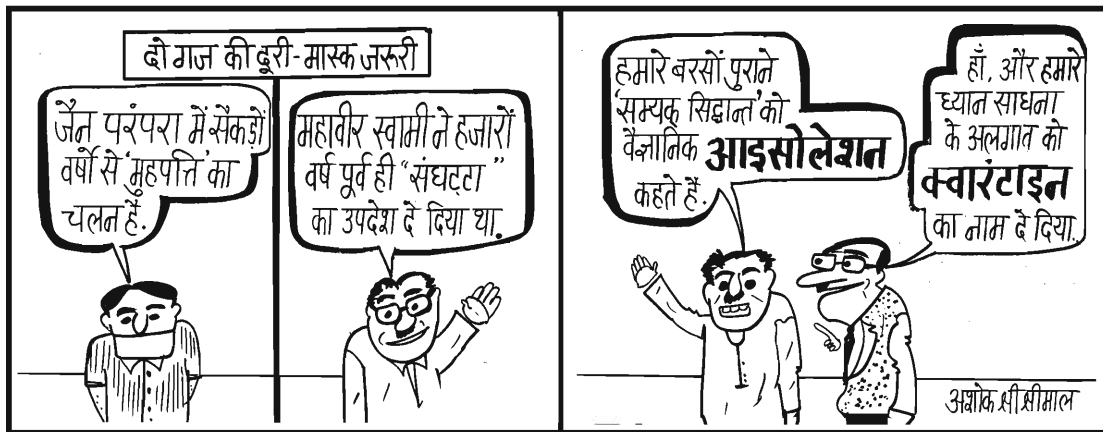 दो गज की दूरी-मास्क जरूरी
जैन परंपरा में सैकड़ों
वर्षो से 'मुहपत्ति' का
चलन है.
महावीर स्वामी ने हजारों
वर्ष पूर्व ही "संघट्टा"
का उपदेश दे दिया था.
हमारे बरसों पुराने
'सम्यक् सिद्धान्त' को
वैज्ञानिक आइसोलेशन
कहते हैं.
हाँ, और हमारे
ध्यान साधना
के अलगाव को
क्वारंटाइन
का नाम दे दिया..
अशोक श्रीश्रीमाल